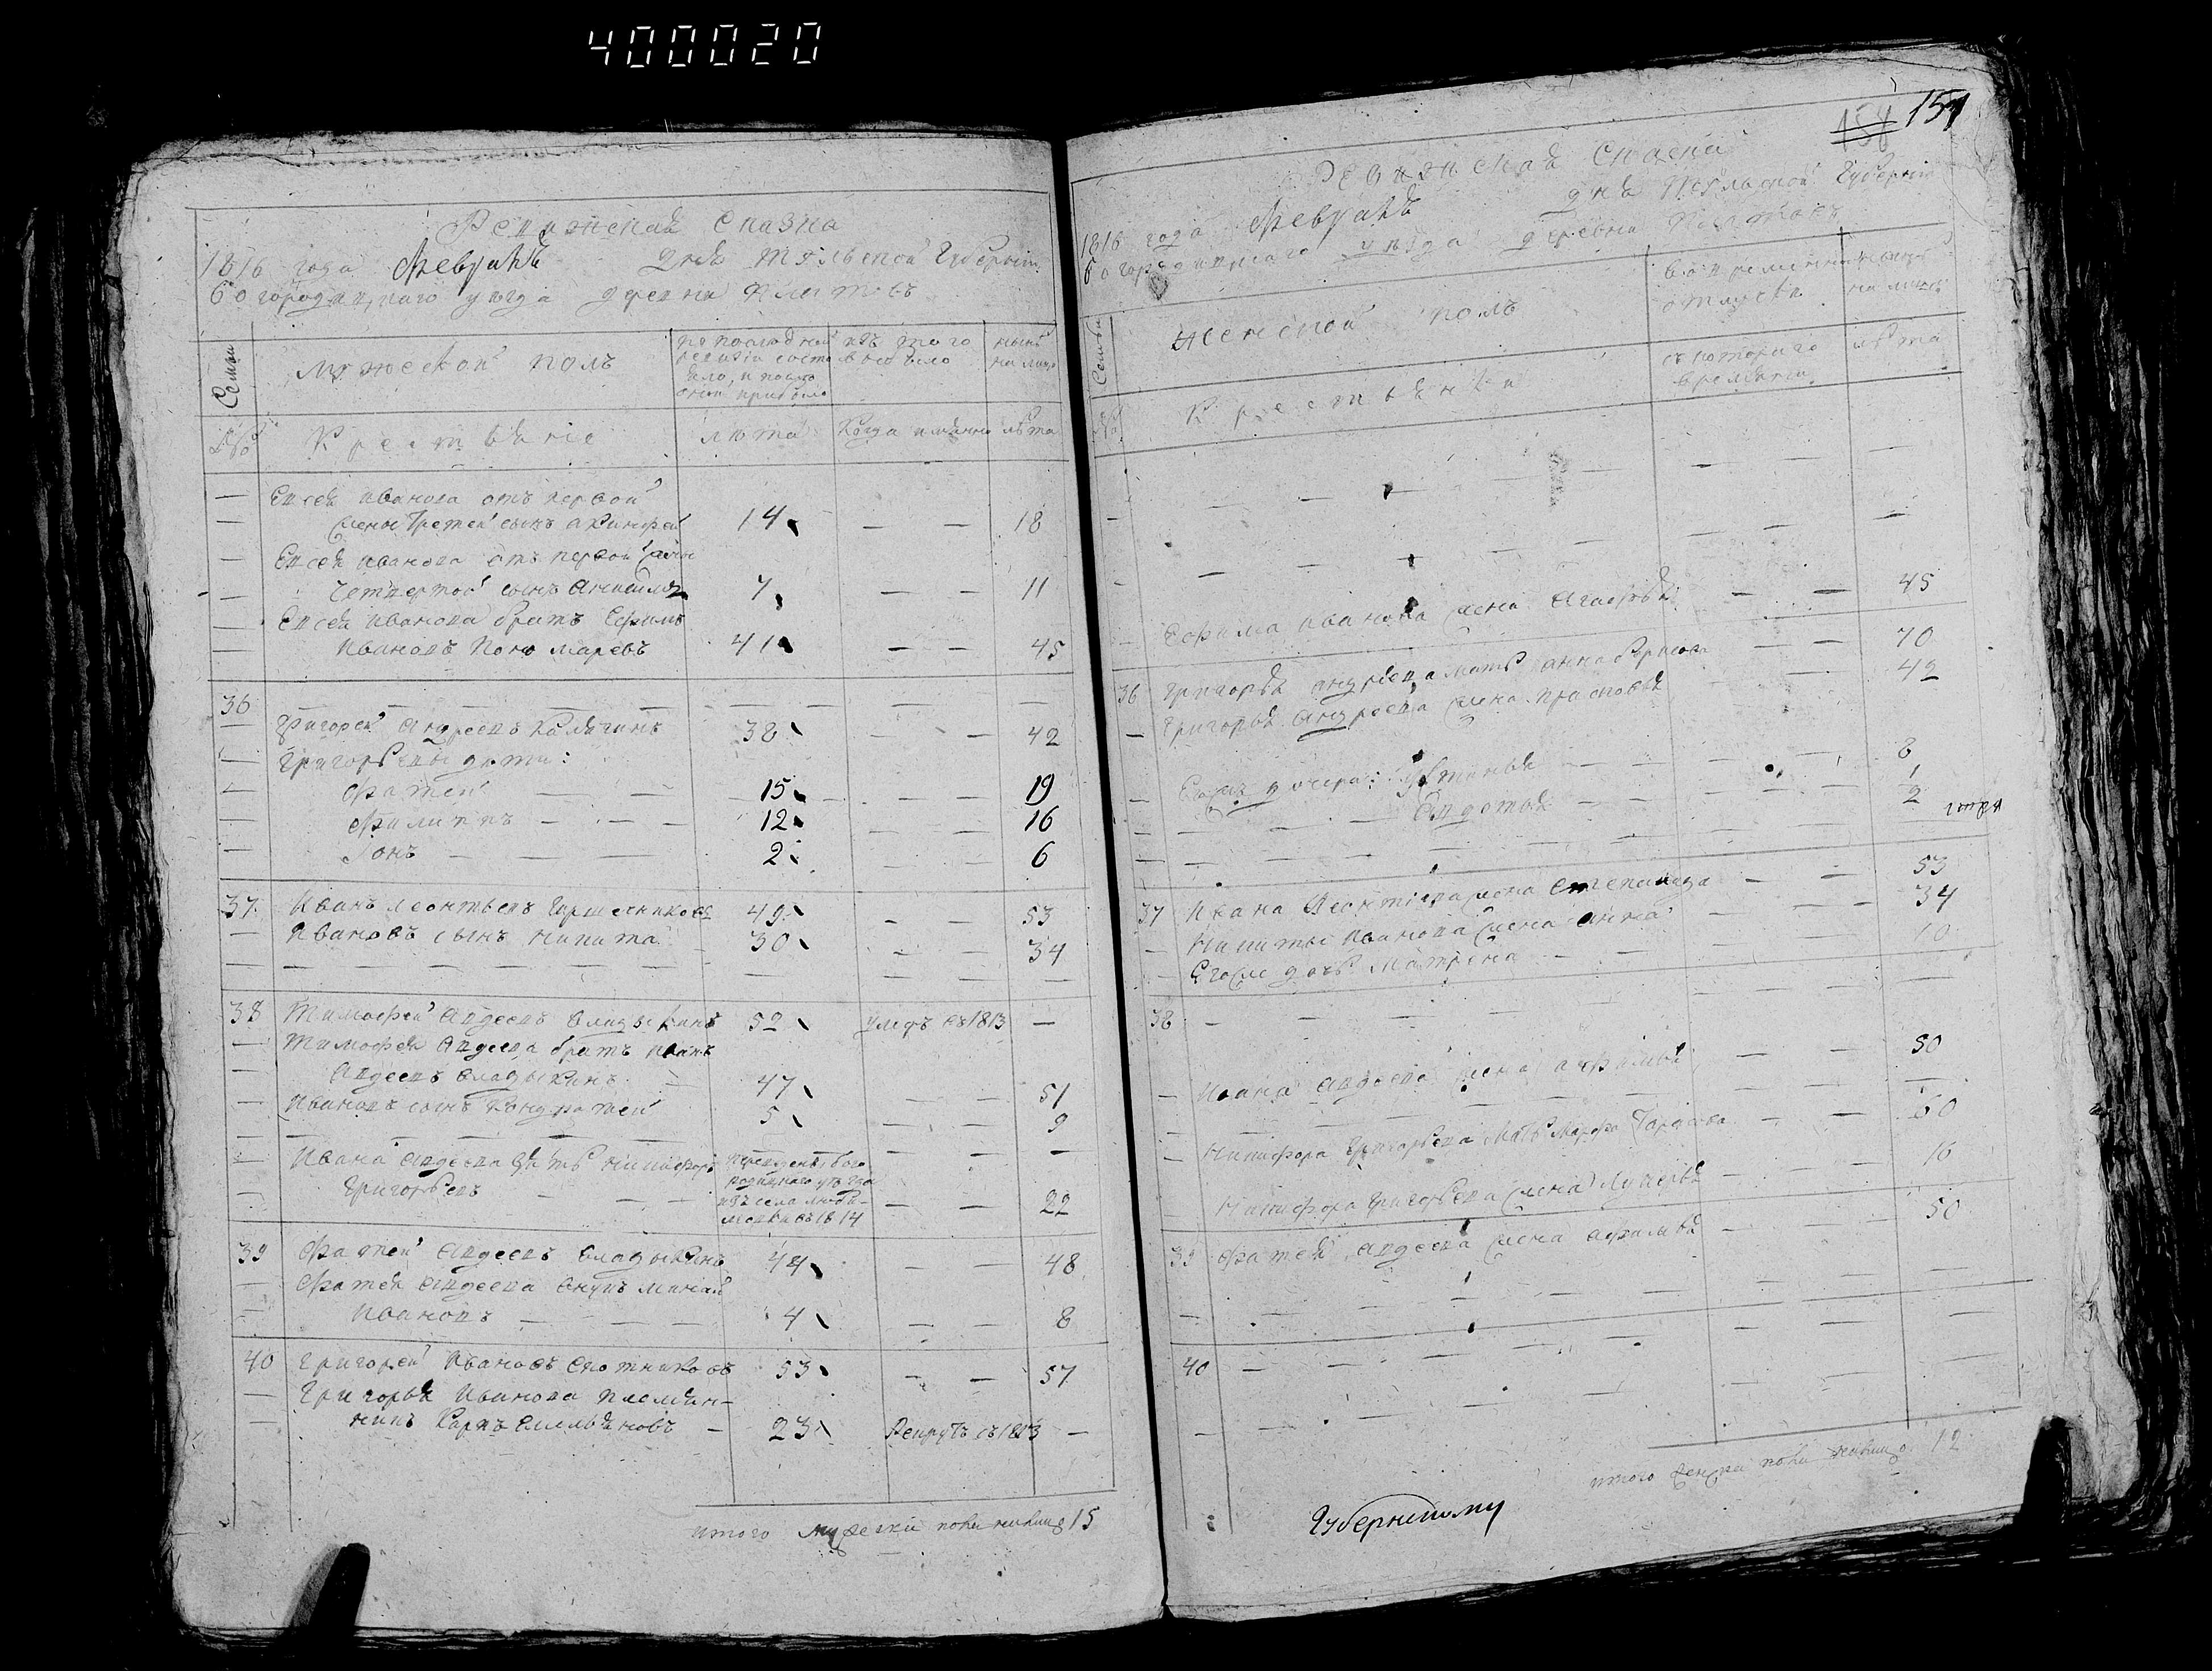 400020
Ревижская сказка
1816 года Февраля дня Тульской Губернiи
богородицкаго уезда деревни
Семьи
мужеской полъ
по последней ревизiи состояло, и после оной прибыло
изъ того выбыло
ныне на лицо
№
Крестьяне
лета
Когда именно
лета
Евсея иванова отъ первой
жены Третей сынъ акинфей 14 — — 18
Евсея иванова отъ первой жены
Четвертой сынъ 7 — — 11
Евсея иванова братъ Ефимъ
ивановъ Пономаревъ 41 — — 45
36
Григорей Андреевъ Калягинъ 38 — — 42
Григорьевы дети:
Фатей — — 15 — — 19
Филиппъ — — 12 — — 16
Iонъ — — — 2 — — 6
37. Иванъ леонтьевъ Горшечниковъ 49 — — 53
Ивановъ сынъ никита 30 — — 34
38 Тимофей Авдеевъ Владыкинъ 52 умеръ въ 1813 —
Тимофея Авдеева братъ иванъ
Авдеевъ Владыкинъ 47 — — 51
Ивановъ сынъ Кондратей 5 — — 9
Ивана Авдеева зять никифоръ
Григорьевъ — — 22
переведенъ богородицкаго уезда
изъ села
въ 1814
39 Фатей Авдеевъ Владыкинъ 44 — — 48
Фатея Авдеева внукъ минай
Ивановъ — — — 4 — — 8
40 Григорей Ивановъ Скотниковъ 53 — — 57
Григорья Иванова племян-
никъ Карпъ Емельяновъ — 23 Рекрутъ въ 1813 —
итого мужеска пола наличо 15
158 151
Ревижская сказка
1816 года Февраля дня Тульской Губернiи
богородицкаго уезда деревни
Семьи
женской полъ
во временной отлучке
ныне на лицо
№
Крестьянки
съ котораго времяни
лета
Ефима иванова жена Агафья — — 45
36 Григорья андреева мать анна борисова — — 70
Григорья Андреева жена прасковья — — 42
Ево дочери: Устинья — — 8
Авдотья — — 1/2 года
37 Ивана Леонтьева жена Степанида — — 53
Никиты иванова жена анна — — 34
Егоже дочь Матрена — — 10
38
Ивана авдеева жена афимья — — 50
Никифора Григорьева мать марфа Тарасова — — 60
Никифора Григорьева жена Лукерья — — 16
39 Фатея авдеева жена афимья — — 50
40
итого женска пола наличо 12
Губернскому